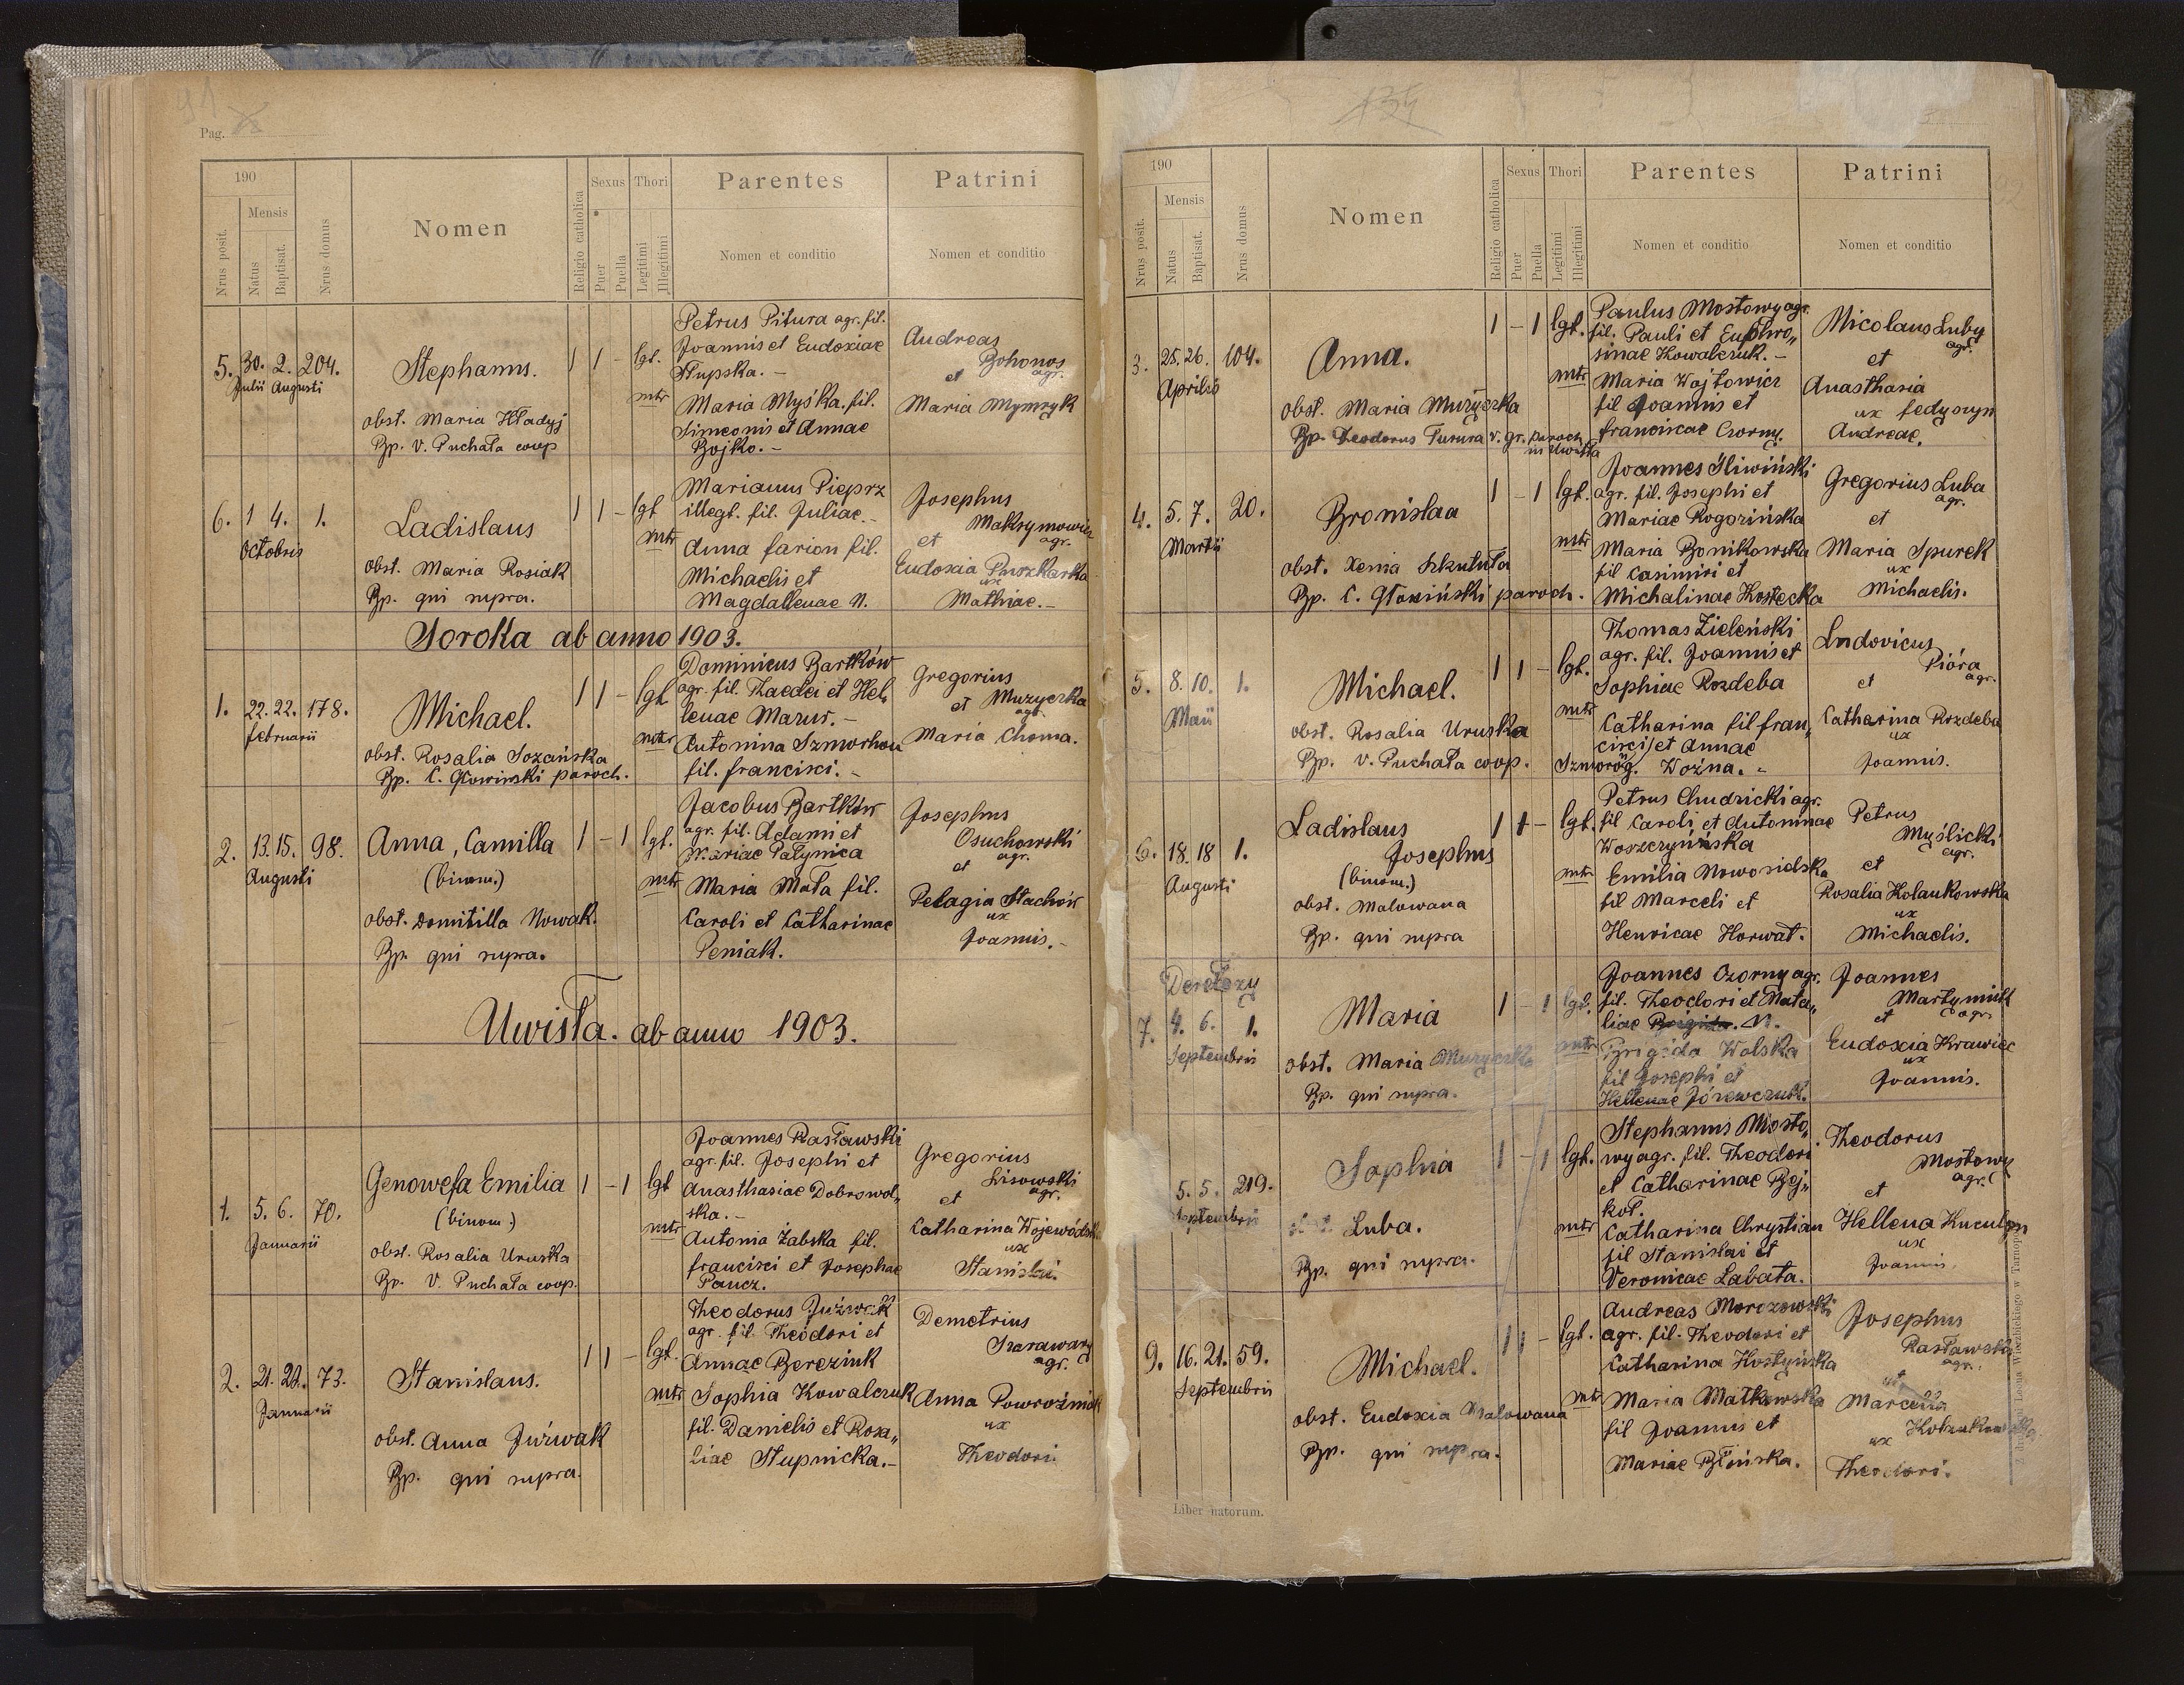 91
Pag.
190
Nrus posit.
Mensis
Natus
Baptisat.
Nrus domus
Nomen
Religio catholica
Sexus
Puer
Puella
Thori
Legitimi
Illegitimi
Parentes
Nomen et conditio
Patrini
Nomen et conditio
5. 30. 2. 204.
Julii Augusti
Stephanus.
obst. Maria Hładyj
Bp. V. Puchała coop
1 1 – lgt.
mtr
Petrus Pitura agr. fil.
Joannis et Eudoxiae
Słupska. –
Maria Myśka. fil.
Simeonis et Annae
Bojko. –
Andreas
Bohonos
agr.
et
Maria Mymryk
6. 1 4. 1.
Octobris
Ladislaus
obst. Maria Rosiak
Bp. qui supra.
1 1 – lgt
mtr
Marianus Pieprz
illegt. fil. Juliae. –
Anna Farion fil.
Michaelis et
Magdallenae N.
Josephus
Maksymowicz
agr.
et
Eudoxia Puszkarska
ux
Mathiae. –
Soroka ab anno 1903.
1. 22. 22. 178.
Februarii
Michael.
obst. Rosalia Sozańska
Bp. C. Głowiński paroch.
1 1 – lgt
mtr
Dominicus Bartków
agr. fil. Thadei et Hel„
lenae Marur. –
Antonina Szmorhou
fil. Francisci. –
Gregorius
et Muzyczka
agr.
Maria Choma.
2. 13. 15. 98.
Augusti
Anna, Camilla
(binom.)
obst. Domitilla Nowak.
Bp. qui supra.
1 – 1 lgt.
mtr
Jacobus Bartków
agr. fil. Adami et
Mariae Pałynica
Maria Mała fil.
Caroli et Catharinae
Peniak.
Josephus
Osuchowski
agr.
et
Pelagia Stachów
ux
Joannis. –
Uwisła. ab anno 1903.
1. 5. 6. 70.
Januarii
Genowefa Emilia
(binom.)
obst. Rosalia Uruska
Bp. V. Puchała coop.
1 – 1 lgt
mtr
Joannes Rasławski
agr. fil. Josephi et
Anasthasiae Dobrowol„
ska. –
Antonia Żabska fil.
Francisci et Josephae
Paucz.
Gregorius
Lisowski
agr.
et
Catharina Wojewódzka
ux
Stanislai.
2. 21. 22. 73.
Januarii
Stanislaus.
obst. Anna Juźwak
Bp. qui supra.
1 1 – lgt.
mtr
Theodorus Juźwak
agr. fil. Theodori et
Annae Bereziuk
Sophia Kowalczuk
fil. Danielis et Rosa„
liae Słupnicka. –
Demetrius
Szarawary
agr.
Anna Powroźniak
ux
Theodori.
134
190
Nrus posit.
Mensis
Natus
Baptisat.
Nrus domus
Nomen
Religio catholica
Sexus
Puer
Puella
Thori
Legitimi
Illegitimi
Parentes
Nomen et conditio
Patrini
Nomen et conditio
3. 25. 26. 104.
Aprilis
Anna.
obst. Maria Muzyczka
Bp. Theodorus Turuta v. gr. paroch
in Uwisła
1 – 1 lgt.
mtr
Paulus Mostowy agr.
fil. Pauli et Euphro„
sinae Kowalczuk. –
Maria Wojtowicz
fil Joannis et
Franciscae Czorny.
Micolaus Luby
agr.
et
Anasthasia
ux Fedyszyn
Andreae.
4. 5. 7. 20.
Martii
Bronislaa
obst. Xenia Szkutuła
Bp. C. Głowiński paroch.
1 – 1 lgt.
mtr
Joannes Śliwiński
agr. fil. Josephi et
Mariae Rogozińska
Maria Bonikowska
fil Casimiri et
Michalinae Kostecka
Gregorius Luba
agr.
et
Maria Spurek
ux
Michaelis.
5. 8. 10. 1.
Maii
Michael.
obst. Rosalia Uruska
Bp. V. Puchała coop.
1 1 – lgt.
mtr
Thomas Zieleński
agr. fil. Joannis et
Sophiae Rozdeba
Catharina fil Fran„
cisci et Annae
Szmoróg. Woźna. –
Ludovicus
Pióra
agr.
et
Catharina Rozdeba
ux
Joannis.
6. 18. 18 1.
Augusti
Ladislaus
Josephus
(binom.)
obst. Malowana
Bp. qui supra
1 1 – lgt.
mtr
Petrus Chudzicki agr.
fil Caroli et Antoninae
Woszczyńska
Emilia Nowosidska
fil Marceli et
Henricae Horwat.
Petrus
Myślicki
agr.
et
Rosalia Kolankowska
ux
Michaelis.
7. 4. 6. 1.
Septembris
Maria
obst. Maria Muzyczka
Bp. qui supra.
1 – 1 lgt.
mtr
Joannes Czorny agr.
fil. Theodori et Nata„
liae Brigida. N.
Brigida Wolska
fil Josephi et
Hellenae Józewczuk.
Joannes
Martyniuk
agr.
et
Eudoxia Krawiec
ux
Joannis.
5. 5. 219.
Septembris
Sophia
Luba.
Bp. qui supra.
1 – 1 lgt.
mtr
Stephanus Mosto„
wy agr. fil. Theodori
et Catharinae Bej„
kot.
Catharina Chrystian
fil Stanislai et
Veronicae Labata.
Theodorus
Mostowy
agr.
et
Hellena Kuculym
ux
Joannis.
9. 16. 21. 59.
Septembris
Michael.
obst. Eudoxia Malowana
Bp. qui supra.
1 1 – lgt.
mtr
Andreas Morozowski
agr. fil. Theodori et
Catharina Hostyńska
Maria Małkowska
fil Joannis et
Mariae Błońska.
Josephus
Rasławski
agr.
et
Marcella
ux
Theodori.
Liber natorum.